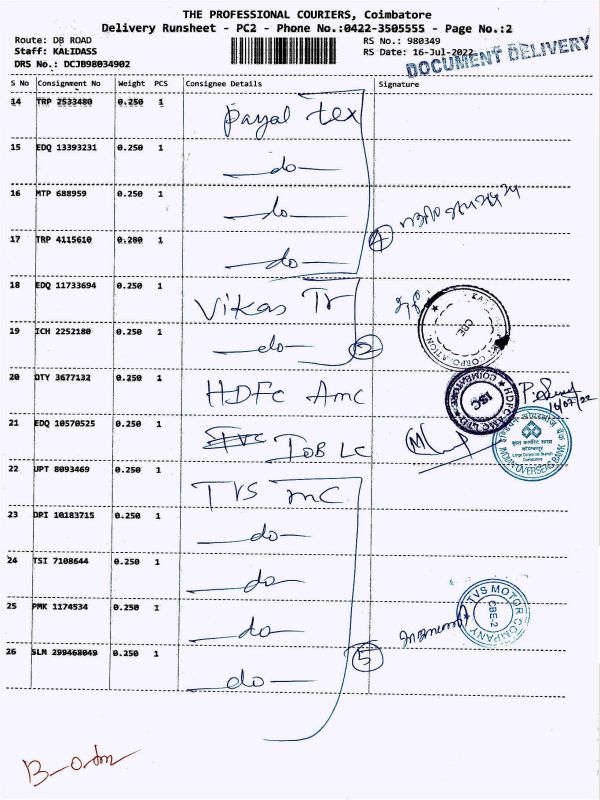 THE PROFESSIONAL COURIERS, Coimbatore
Delivery Runsheet - PC2 - Phone No.:0422-3505555 - Page No.:2
Route: DB ROAD
RS No.: 980349
Staff: KALIDASS
RS Date: 16-Jul-2022
DRS No.: DCJB98034902
DOCUMENT DELIVERY
S No Consignment No Weight PCS Consignee Details Signature
14 TRP 2533480 0.250 1 Payal Tex
15 EDQ 13393231 0.250 1 do
16 MTP 688959 0.250 1 do
17 TRP 4115610 0.200 1 do
4
18 EDQ 11733694 0.250 1 Vikas Tr
19 ICH 2252180 0.250 1 do
2
CBE
CORPORATION
20 DTY 3677132 0.250 1 HDFC Amc
HDFC AMC LTD
COIMBATORE
16/07/22
21 EDQ 10570525 0.250 1 IOB LC
INDIAN OVERSEAS BANK
22 JPT 8093469 0.250 1 TVS mc
23 DPI 10183715 0.250 1 do
24 TSI 7108644 0.250 1 do
25 PMK 1174534 0.250 1 do
TVS MOTOR COMPANY
CBE-2
26 SLM 299468049 0.250 1 do
5